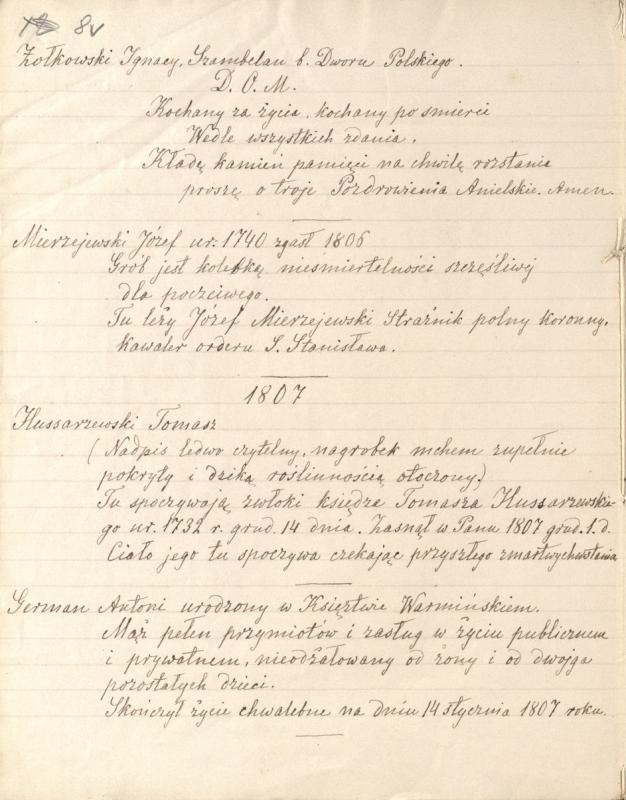 8v
Żołkowski Ignacy, Szambelan b. Dworu Polskiego.
D. O. M.
Kochany za życia, kochany po smierci
Wedle wszystkich zdania.
Kładę kamień pamięci na chwilę rozstania
proszę o troje Pozdrowienia Anielskie. Amen.
Mierzejewski Józef ur. 1740 zgasł 1806
Grób jest kolebką nieśmiertelności szczęśliwej
dla poczciwego.
Tu leży Józef Mierzejewski Strażnik polny koronny,
kawaler orderu S. Stanisława.
1807
Hussarzewski Tomasz
(Nadpis ledwo czytelny, nagrobek mchem zupełnie
pokryty i dziką roślinnością otoczony.)
Tu spoczywają zwłoki księdza Tomasza Hussarzewskie-
go ur. 1732 r. grud. 14 dnia. Zasnął w Panu 1807 grud. 1. d.
Ciało jego tu spoczywa czekając przyszłego zmartwychwstania
German Antoni urodzony w Księztwie Warmińskiem.
Mąż pełen przymiotów i zasług w życiu publicznem
i prywatnem, nieodżałowany od żony i od dwojga
pozostałych dzieci.
Skończył życie chwalebne na dniu 14 stycznia 1807 roku.